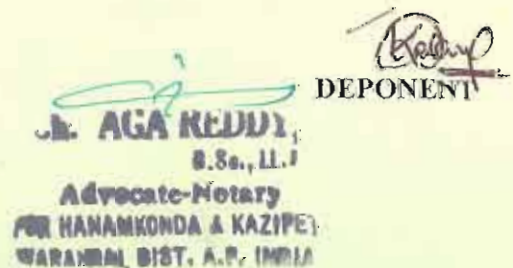 DEPONENT
AGA REDDY,
B.Sc., LL.B
Advocate-Notary
FOR HANAMKONDA & KAZIPET
WARANGAL DIST. A.P. INDIA